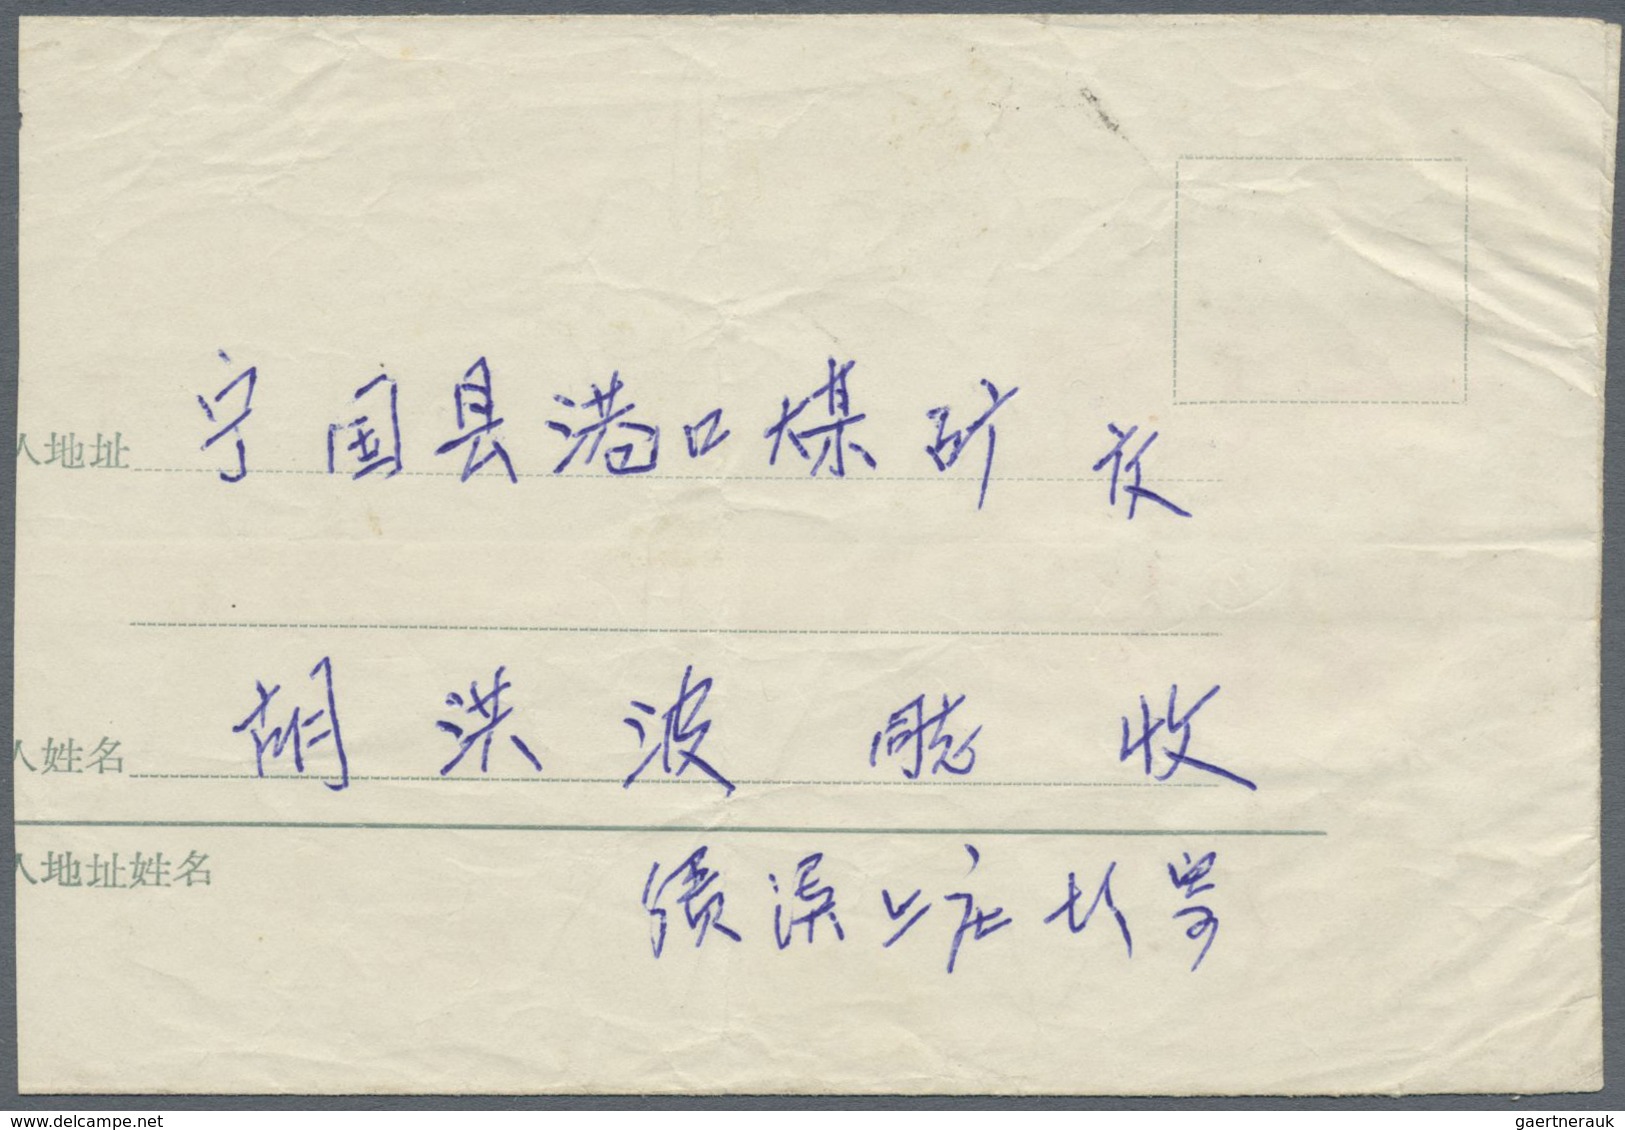 人地址 宁国县港口煤矿
人姓名 胡洪波 同志 收
人地址姓名
绩溪上庄 寄
www.delcampe.net
gaertnerauk